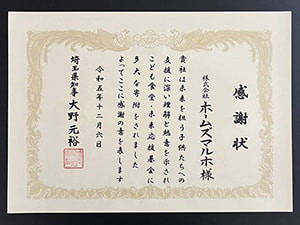 感謝状
株式会社
ホームズマルホ様
貴社は未来を担う子供たちへの
支援に深い理解と熱意を示され
こども食堂・未来応援基金に
多大な寄附をされました
よってここに感謝の意を表します
令和五年十二月六日
埼玉県知事 大野元裕